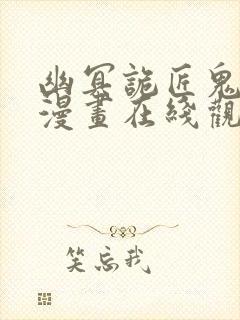 幽冥詭匠鬼
漫畫在綫觀
笑忘我